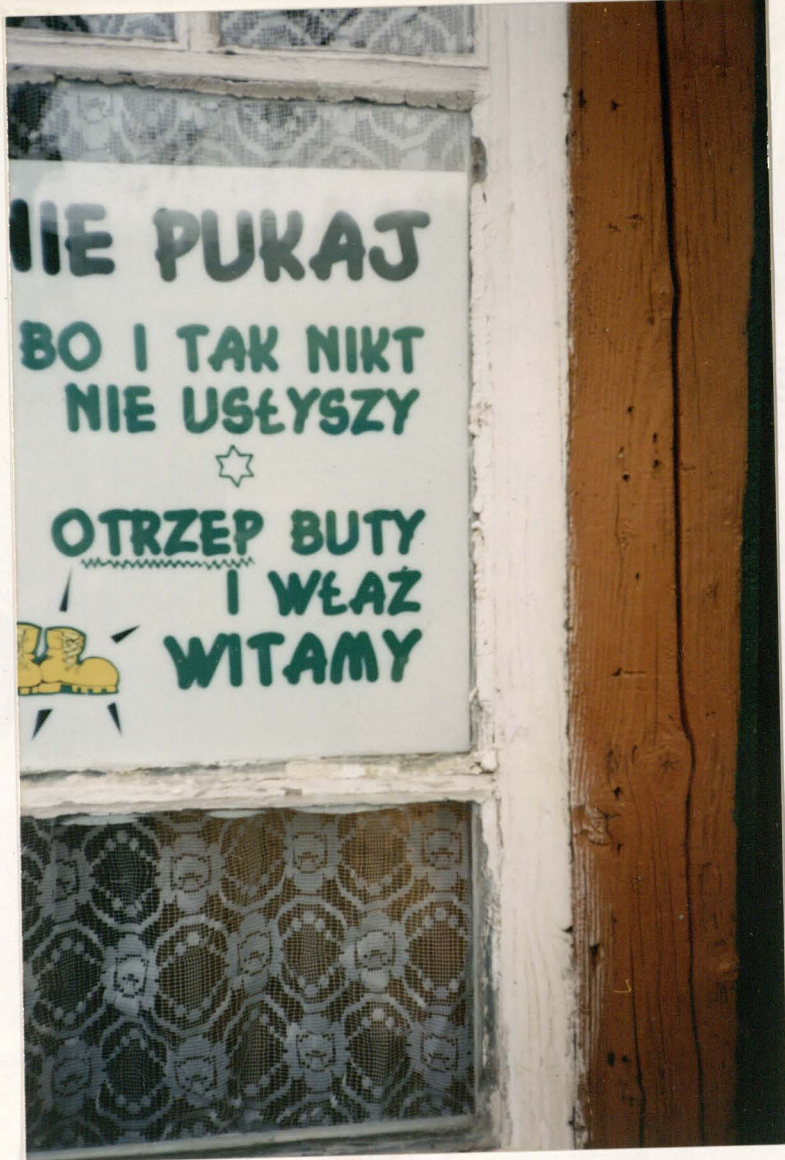 NIE PUKAJ
BO I TAK NIKT
NIE USŁYSZY
OTRZEP BUTY
I WŁAŹ
WITAMY